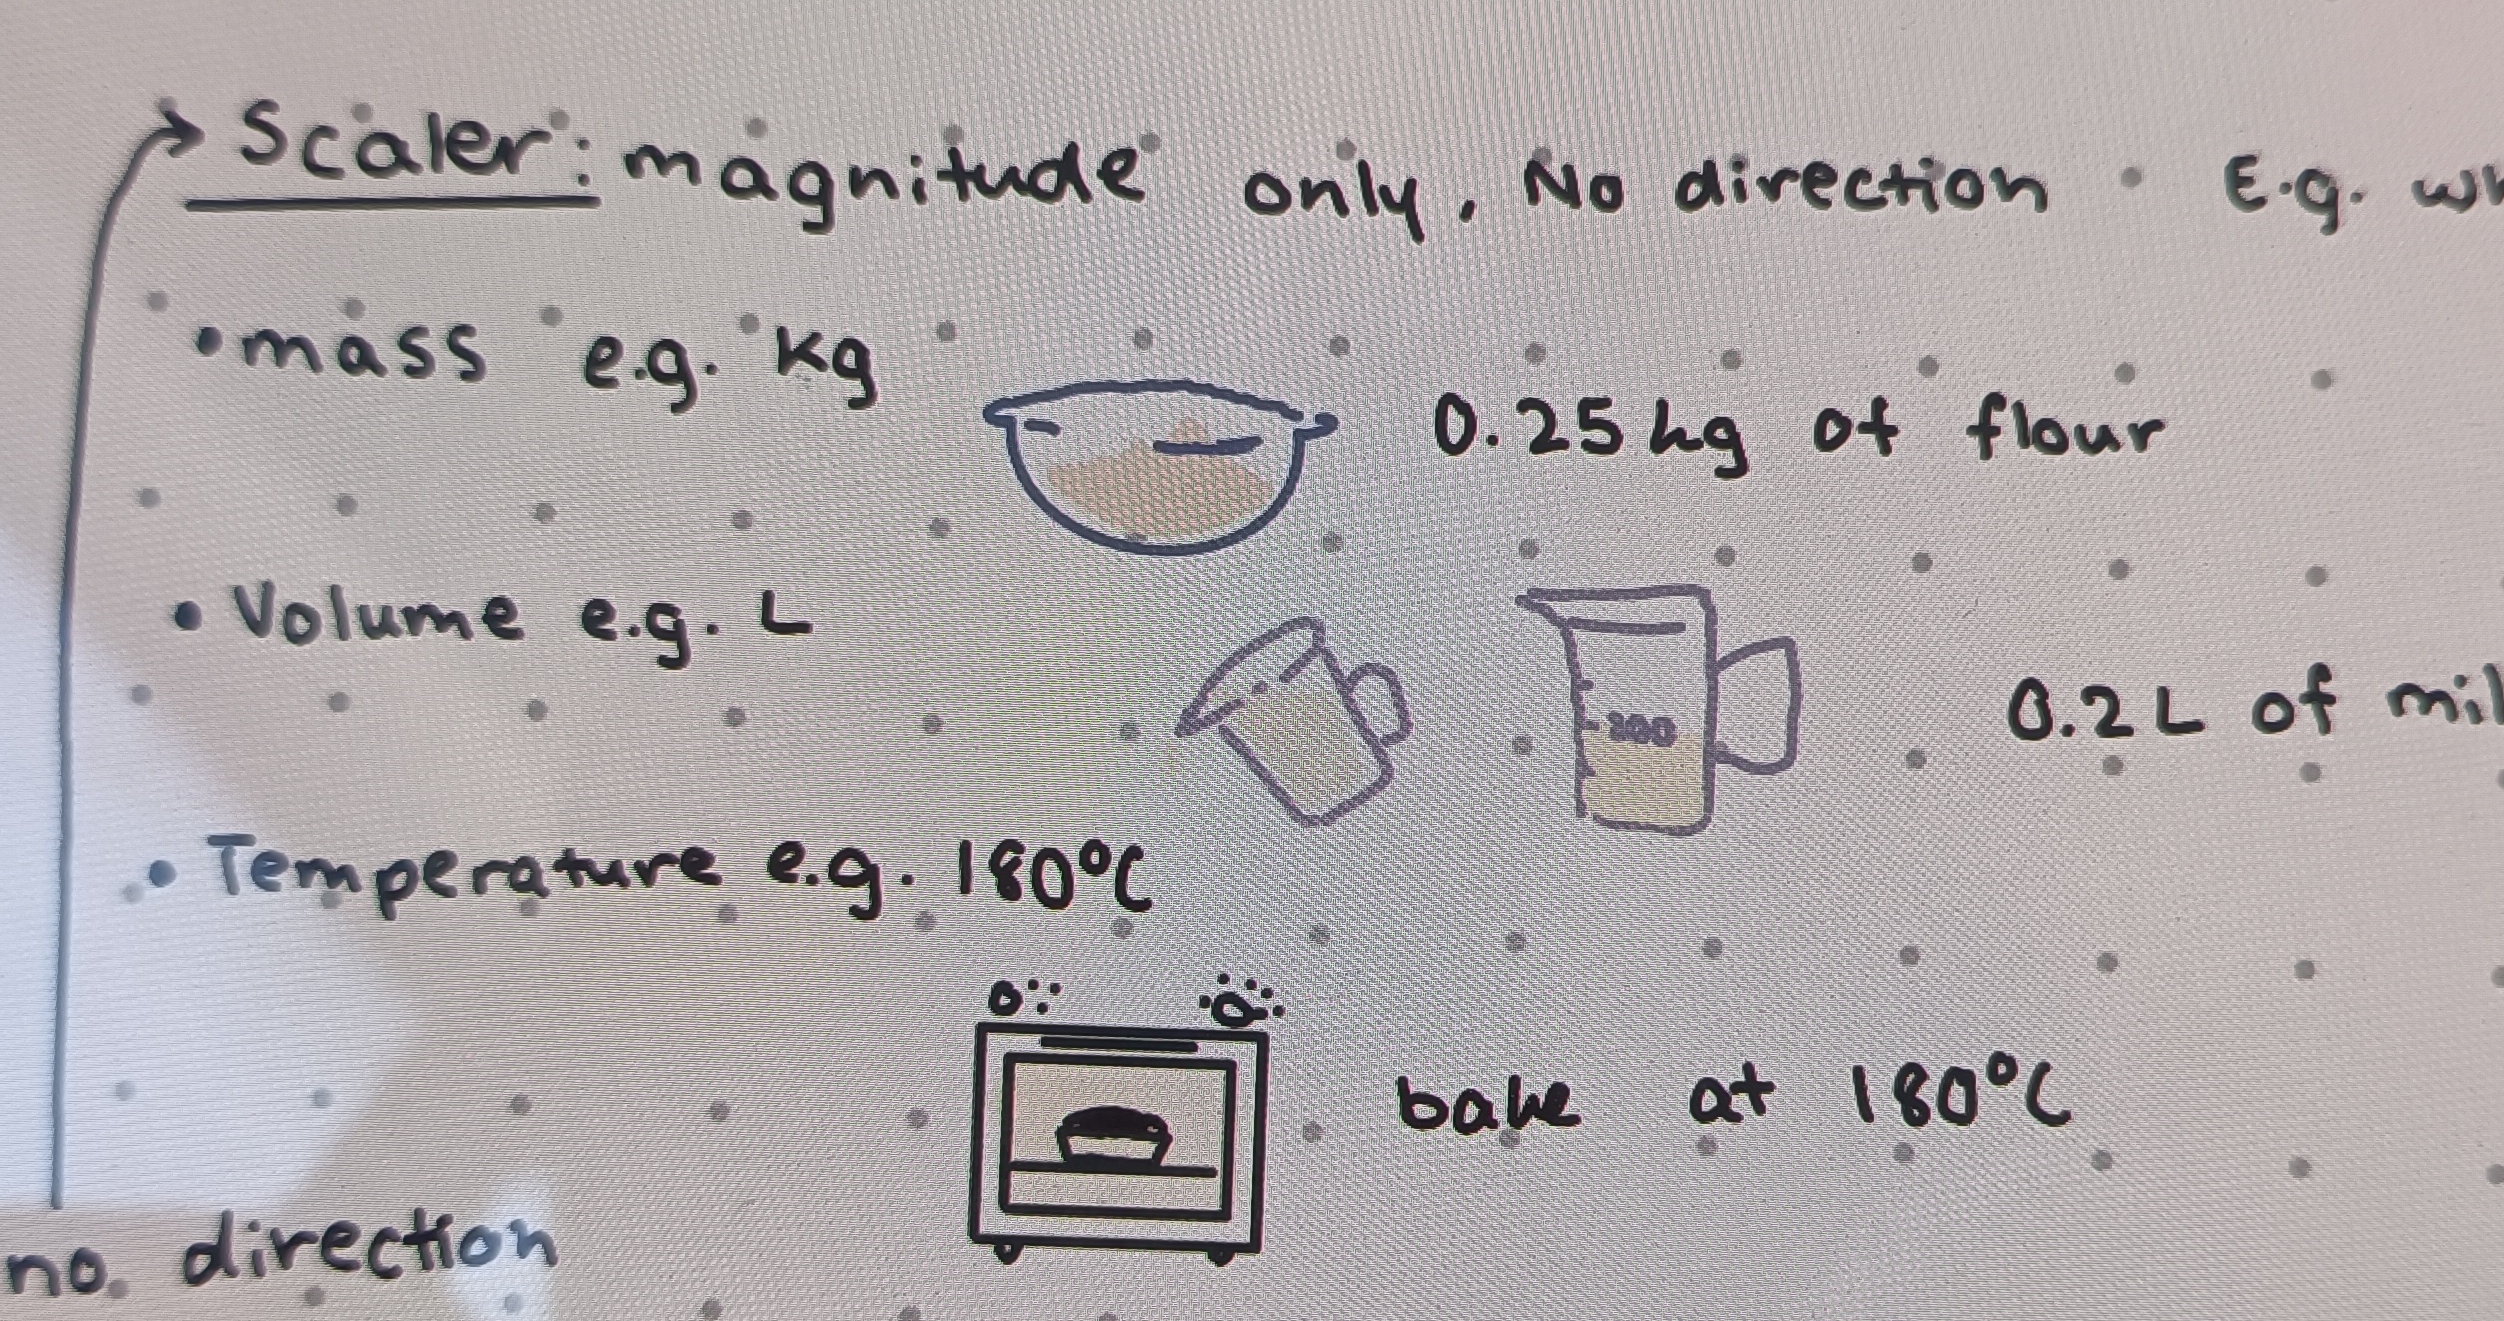 Scaler: magnitude only. No direction E.g.
• mass e.g. kg
0.25kg of flour
• Volume e.g. L
200
0.2L of
• Temperature e.g. 180°C
bake at 180°C
no direction